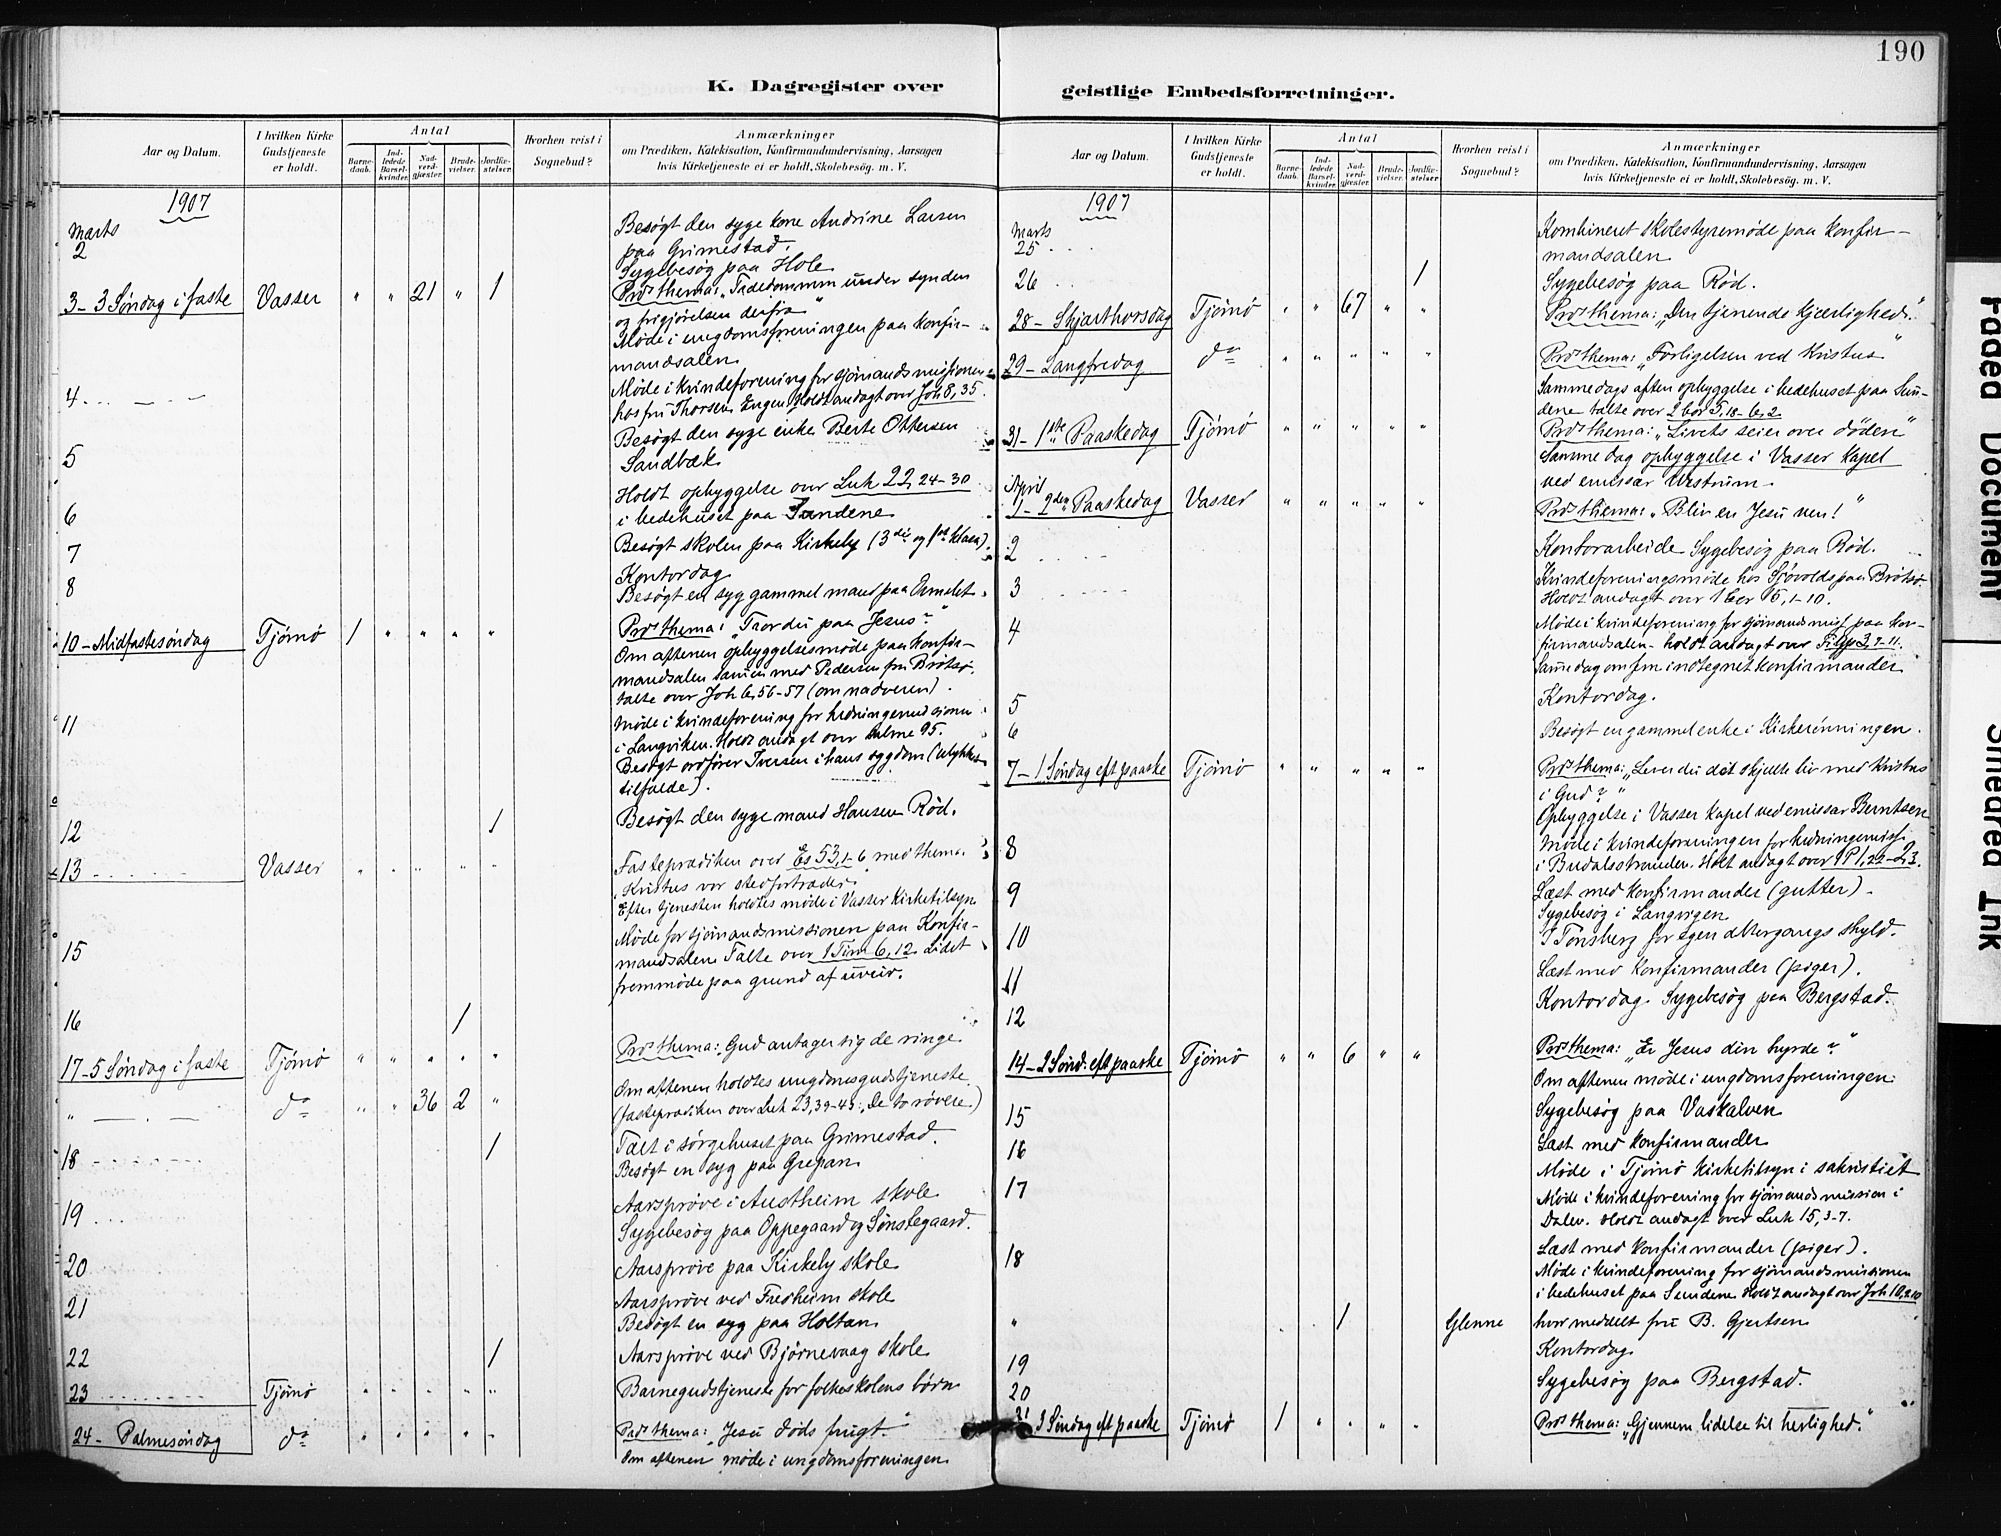 190
K. Dagregister over
geistlige Embedsforretninger.
Aar og Datum.
I hvilken Kirke
Gudstjeneste
er holdt.
Antal
Barne-
daab.
Ind-
ledede
Barsel-
kvinder.
Nad-
verd-
gjester.
Brude-
vielser.
Jordfæ-
stelser.
Hvorhen reist i
Sognebud?
Anmærkninger
om Prædiken, Katekisation, Konfirmandundervisning, Aarsagen
hvis Kirketjeneste ei er holdt, Skolebesøg. m. V.
1907
Marts
2
Besøgt den syge kone Andrine Larsen
paa Grimestad.
Sygebesøg paa Hole
3 - 3 Søndag i faste Vasser " " 21 " 1
Præs thema: "Trædommen under synden
og frigjørelsen derfra"
Møde i ungdomsforeningen paa konfir-
mandsalen
4
Møde i kvindeforening for sjømandsmissionen
hos fru Thorsen Engen. Holdt andagt over Joh 8, 35.
Besøgt den syge enke Berte Ottersen
5
Sandbæk
Holdt opbyggelse over Luk 22, 24-30
6
i bedehuset paa Sundene
7
Besøgt skolen paa Kirkely (3die og 1ste klasse).
Kontordag
8
Besøgt en syg gammel mand paa Ormelet.
10 - Midfastesøndag Tjømø 1 " " " "
Præs thema: "Tror du paa Jesus?"
Om aftenen opbyggelsesmøde paa konfir-
mandsalen sammen med Pedersen fra Brøtsø.
talte over Joh 6, 56-57 (om nadveren).
11
Møde i kvindeforening for hedningemissionen
i Langviken. Holdt andagt over Salme 95.
Besøgt ordfører Iversen i hans sygdom (ulykkes-
tilfælde).
12 1
Besøgt den syge mand Hansen Rød.
13 Vasser " " " " "
Fasteprædiken over Es 53, 1-6 med thema:
Kristus vor stedfortræder.
Efter tjenesten holdtes møde i Vasser Kirketilsyn
15
Møde for sjømandsmissionen paa Konfir-
mandsalen Talte over 1 Tim 6, 12. Lidet
fremmøde paa grund af uveir.
16 1
17 - 5 Søndag i faste Tjømø " " " " "
Præs thema: "Gud antager sig de ringe"
" d° " " 36 2 "
Om aftenen holdtes ungdomsgudstjeneste
(fasteprædiken over Luk 23, 39-43: De to røvere)
18 1
Talt i sørgehuset paa Grimestad.
Besøgt en syg paa Grepan
19
Aarsprøve i Austheim skole
Sygebesøg paa Oppegaard og Sønstegaard.
20
Aarsprøve paa Kirkely skole
21
Aarsprøve ved Fredheim skole
Besøgt en syg paa Holtan
22 1
Aarsprøve ved Bjørnevaag skole
23 Tjømø " " " " "
Barnegudstjeneste for folkeskolens børn
24 - Palmesøndag d° " " " " "
Præs thema: "Jesu døds frugt."
Om aftenen møde i ungdomsforeningen
Aar og Datum.
I hvilken Kirke
Gudstjeneste
er holdt.
Antal
Barne-
daab.
Ind-
ledede
Barsel-
kvinder.
Nad-
verd-
gjester.
Brude-
vielser.
Jordfæ-
stelser.
Hvorhen reist i
Sognebud?
Anmærkninger
om Prædiken, Katekisation, Konfirmandundervisning, Aarsagen
hvis Kirketjeneste ei er holdt, Skolebesøg. m. V.
1907
Marts
25
Kombineret skolestyremøde paa konfir-
mandsalen
26 1
Sygebesøg paa Rød.
28 - Skjærthorsdag Tjømø " " 67 " "
Præs thema: "Den tjenende kjærlighed."
29 - Langfredag d° " " " " "
Præs thema: "Forligelsen ved Kristus"
Samme dags aften opbyggelse i bedehuset paa Sun-
dene talte over 2 Cor 5, 18-6, 2
31 - 1ste Paaskedag Tjømø " " " " "
Præs thema: "Livets seier over døden"
Samme dag opbyggelse i Vasser Kapel
ved emissær Westrum
April
1 - 2den Paaskedag Vasser " " " " "
Præs thema: "Bliv en Jesu ven!"
2
Kontorarbeide Sygebesøg paa Rød.
3
Kvindeforeningsmøde hos Sjøvolds paa Brøtsø.
Holdt andagt over 1 Cor 15, 1-10.
4
Møde i kvindeforening for sjømandsmiss paa kon-
firmandsalen - holdt andagt over Filip 3, 7-11.
Samme dag om fm. indtegnet konfirmander
5
Kontordag.
6
Besøgt en gammel enke i Kirkerønningen.
7 - 1 Søndag eft paaske Tjømø " " " " "
Præs thema: "Lever du det skjulte liv med Kristus
i Gud?"
Opbyggelse i Vasser Kapel ved emissær Berntsen
8
Møde i kvindeforeningen for hedningemiss.
i Budalsstranden. Holdt andagt over 1 P 1, 22-2, 3.
9
Læst med konfirmander (gutter).
Sygebesøg i Langvigen
10
I Tønsberg for egen altergangs skyld.
11
Læst med konfirmander (piger).
12
Kontordag. Sygebesøg paa Bergstad.
14 - 2 Sønd. eft paaske Tjømø " " 6 " "
Præs thema: "Er Jesus din hyrde?"
Om aftenen møde i ungdomsforeningen
15
Sygebesøg paa Vaskalven
16
Læst med konfirmander
Møde i Tjømø Kirketilsyn i sakristiet
17
Møde i kvindeforening for sjømandsmission i
Dalen. Holdt andagt over Luk 15, 3-7.
18
Læst med konfirmander (piger).
Møde i kvindeforening for sjømandsmissionen
i bedehuset paa Sundene Holdt andagt over Joh 10
" 1 Glenne hvor meddelt fru B. Gjertsen
19
Kontordag
20
Sygebesøg paa Bergstad.
21 3 Søndag eft paaske Tjømø 1 " " " "
Præs thema: "Gjennem lidelse til herlighed."
Faded Document
Smeared Ink